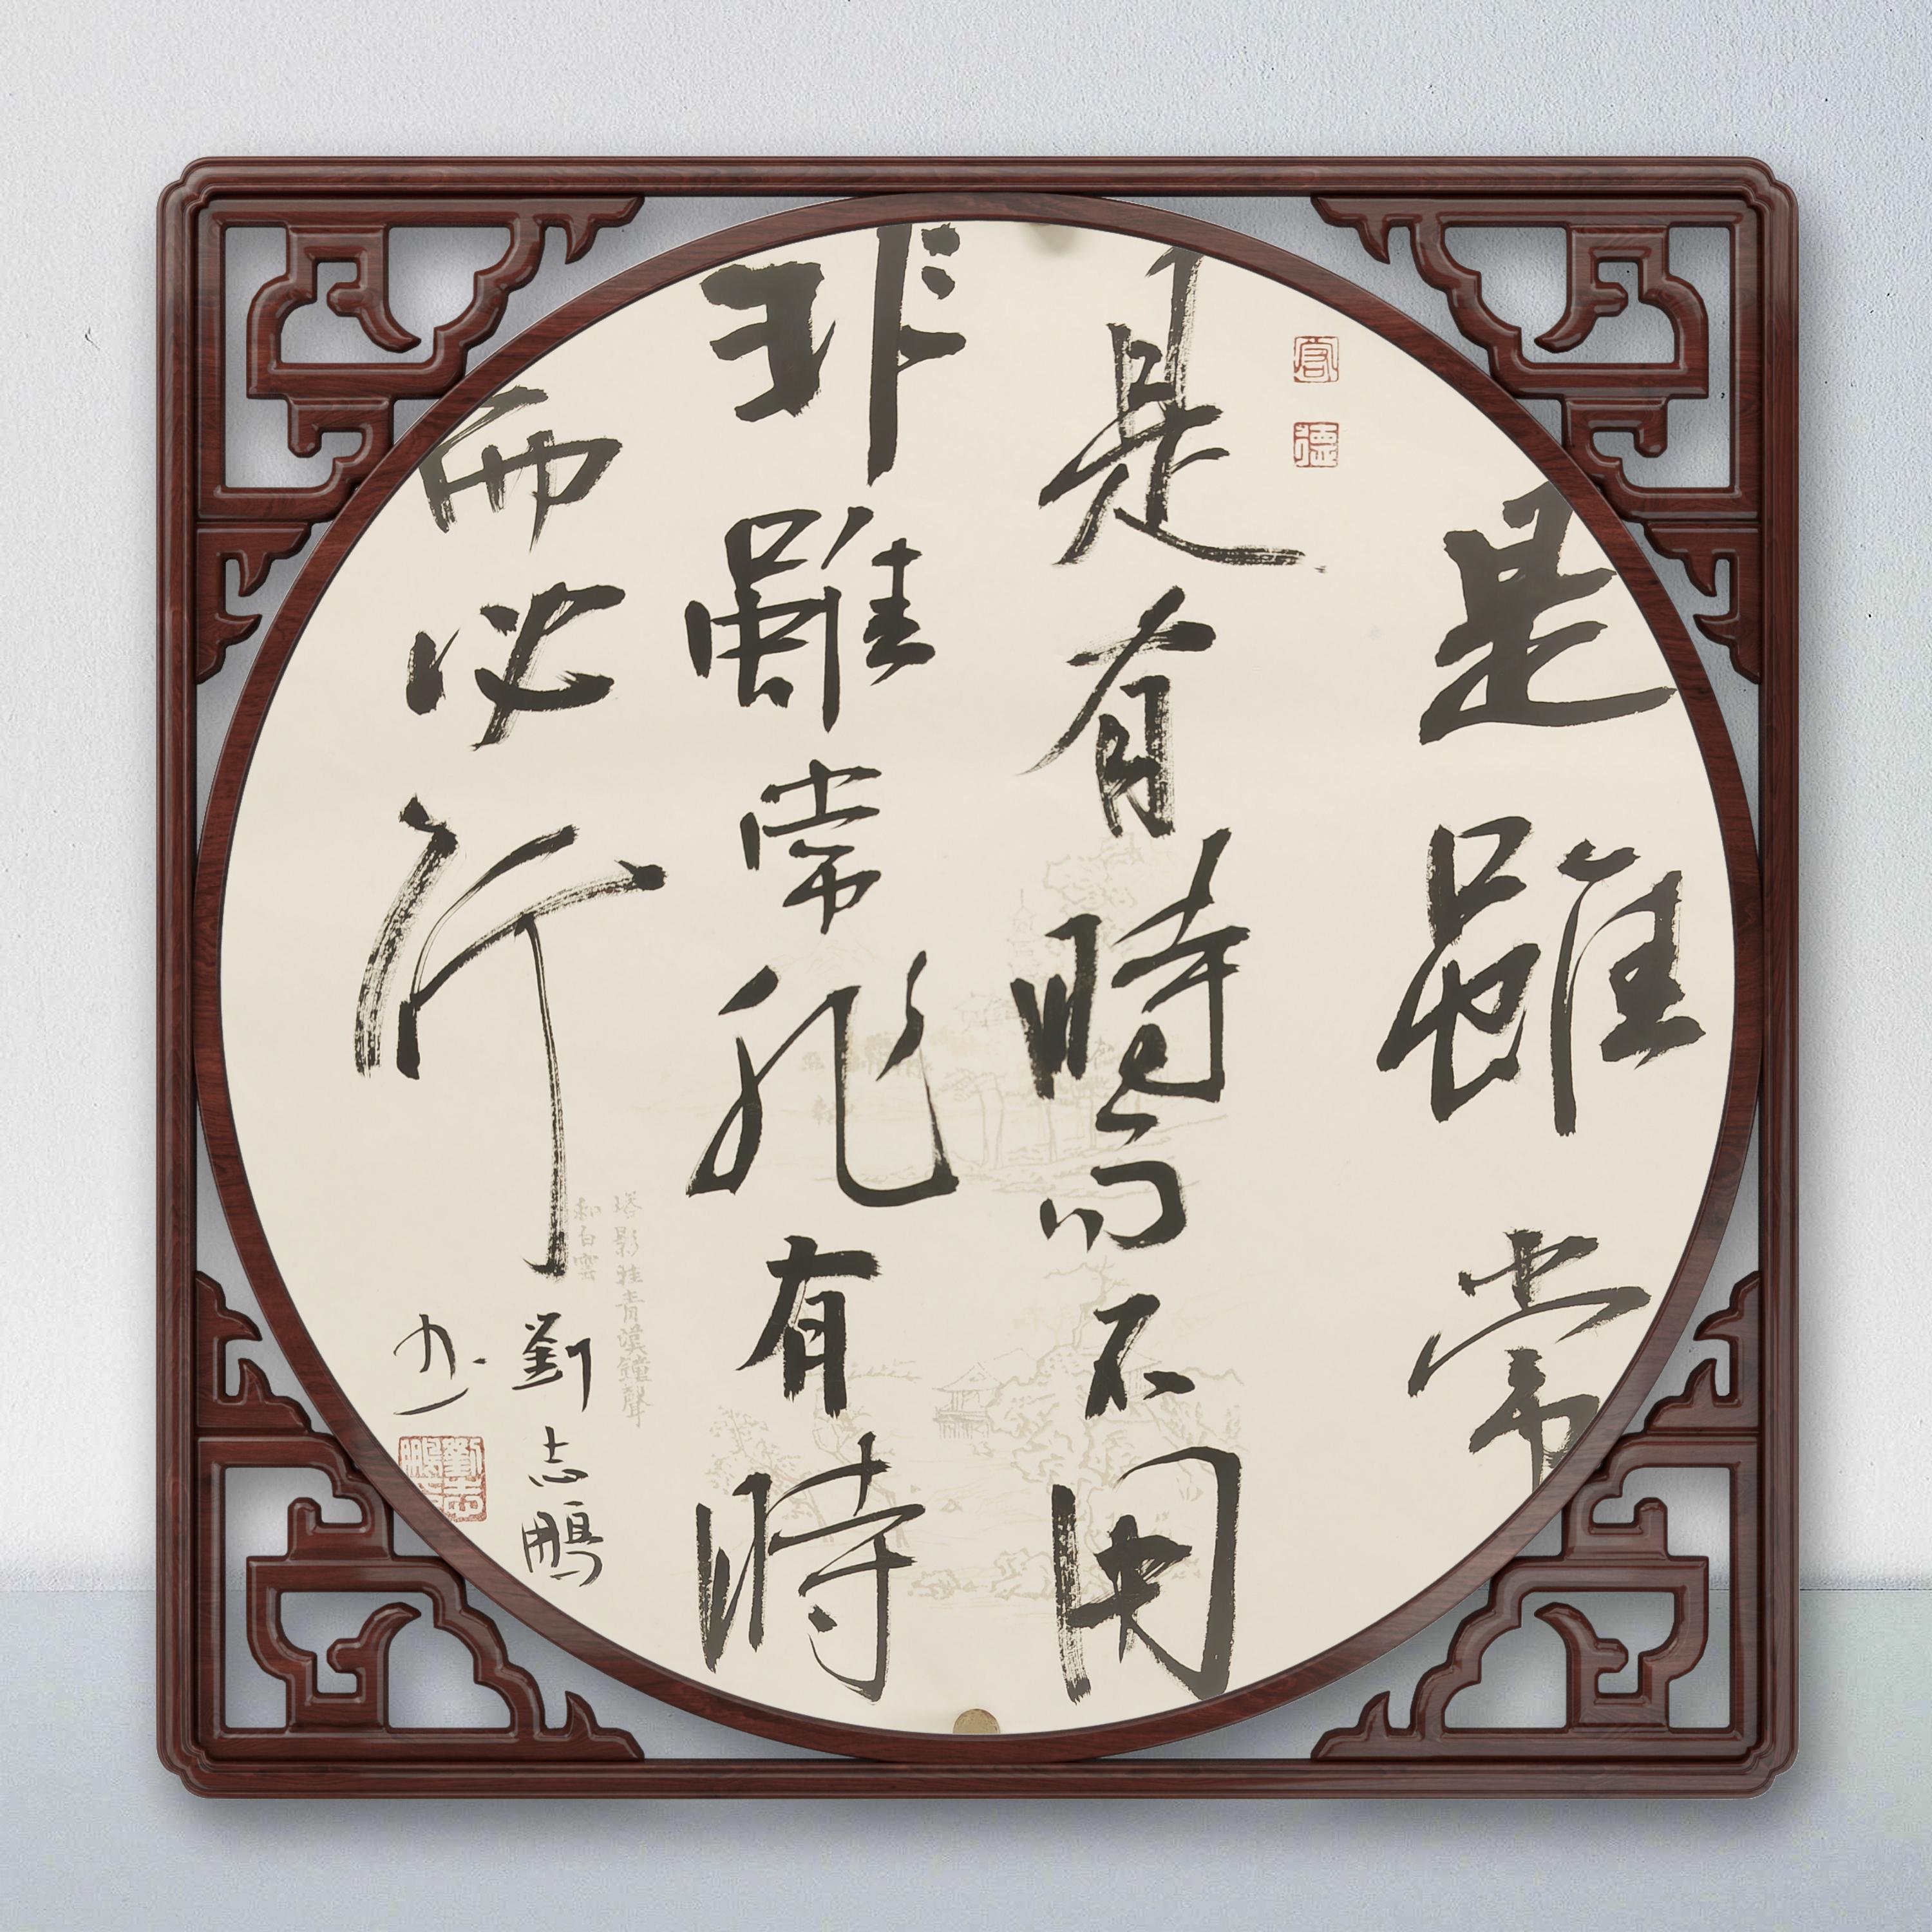 是雖常
是有時而不用
非雖常非有時
而必行
劉志鵬
塔影挂青漢鐘聲
和白雲
德
劉志鵬